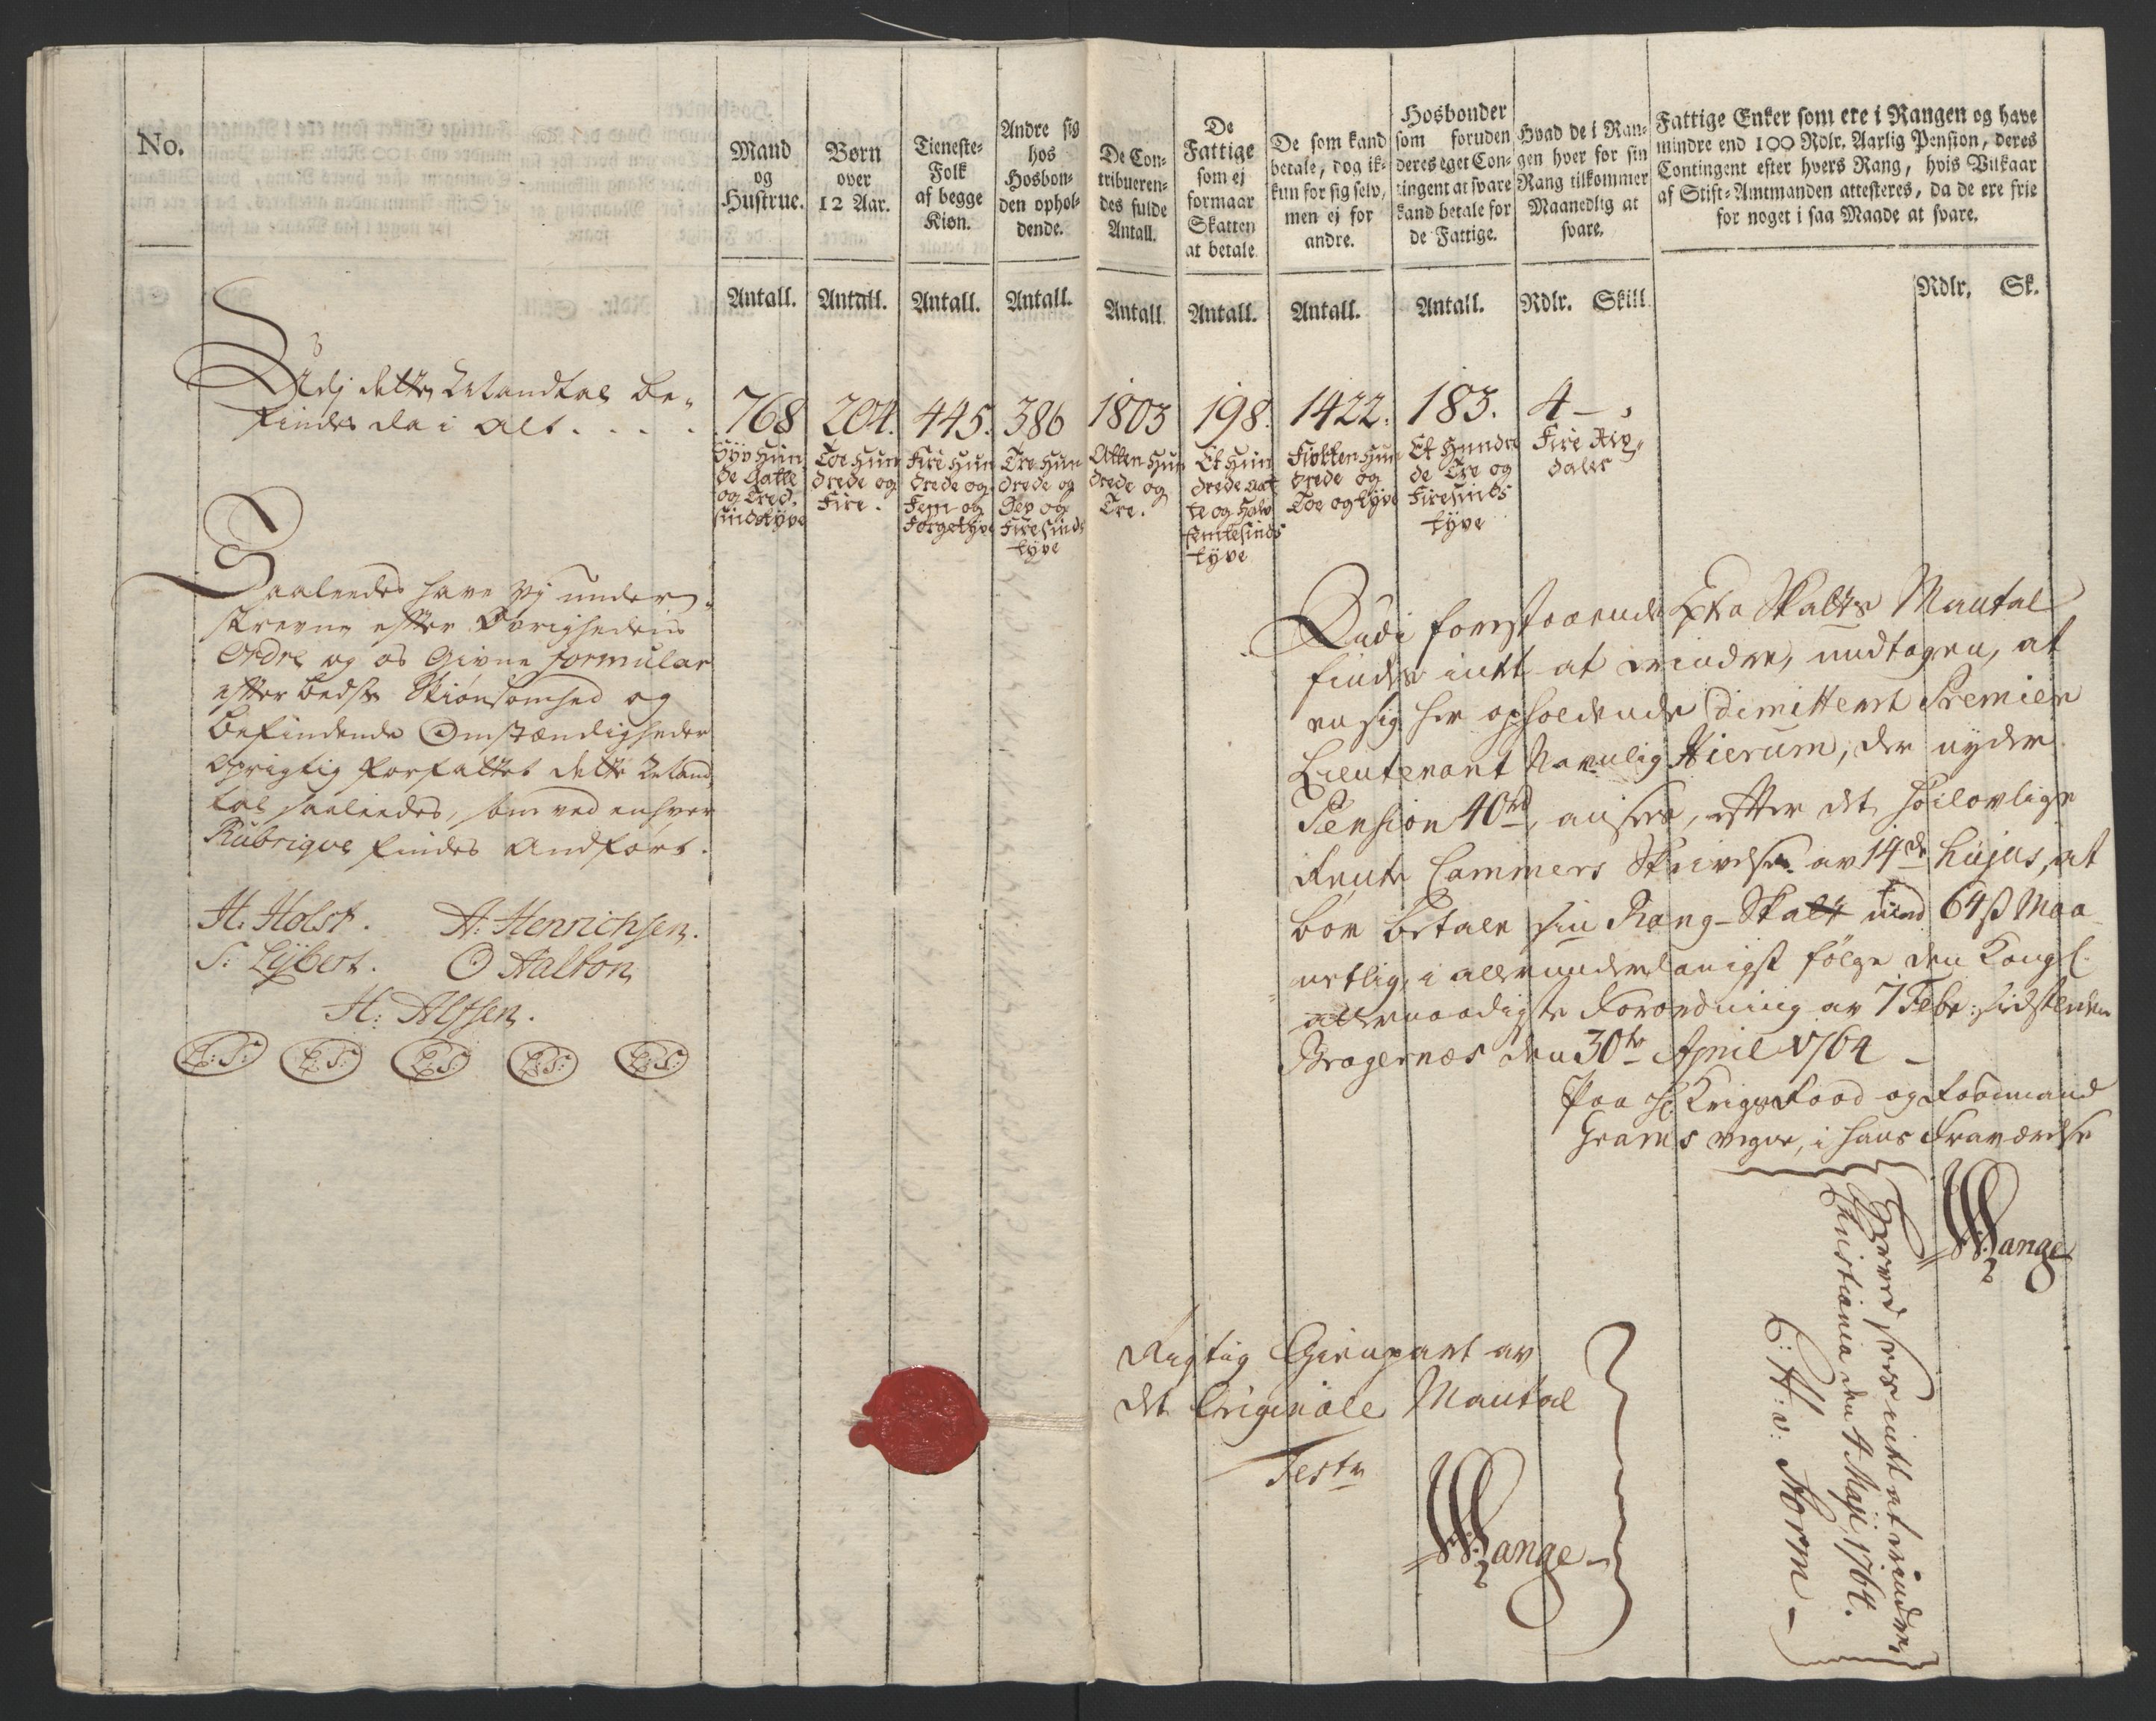 No.
Mand
og
Hustrue.
Antall.
Børn
over
12 Aar.
Antall.
Tieneste-
Folk
af begge
Kiøn.
Antall.
Andre sig
hos
Hosbon-
den ophol-
dende.
Antall.
De Con-
tribueren-
des fulde
Antall.
Antall
De
Fattige
som ej
formaar
Skatten
at betale
Antall.
De som kand
betale, dog ik-
kun for sig selv,
men ej for
andre.
Antall.
Hosbonder
som foruden
deres eget Con-
tingent at svare
kand betale for
de Fattige.
Antall.
Hvad de i Ran-
gen hver for sin
Rang tilkommer
Maanedlig at
svare.
Rdlr. Skill
Fattige Enker som ere i Rangen og have
mindre end 100 Rdlr. Aarlig Pension, deres
Contingent efter hvers Rang, hvis Vilkaar
af Stift-Amtmanden attesteres, da de ere frie
for noget i saa Maade at svare.
Rdlr. Sk.
Udj dette Mandtal be-
findes da i alt . . . .
768
Syv Hun
de Aatte
og Tred-
sindstyve
204.
Toe Hun
drede og
Fire.
445.
Fire Hun
drede og
Fem og
Førgetyve
386
Tre Hun
drede og
Sex og
Firesinds
tyve
1803
Atten Hun
drede og
Tre.
198.
Et Hun
drede Aat
te og Halv
femtesinds
tyve
1422.
Fiorten Hun
drede og
Toe og tyve
183.
Et Hundre
de Tre og
Firesinds
tyve
4 – ,
Fire Rix
daler
Saaleedes have vj under-
skrevne efter Øvrighedens
Ordre og os Givne formular
efter bedste Skiønsomhed og
befindende Omstændigheder
oprigtig forfattet dette Mand
tal saaleedes, som ved enhver
Rubrique findes Andført.
H. Holst. A. Henrichsen.
S: Lÿbert. O Aalton
H: Alfsen.
L:S: L:S: L:S: L:S: L:S:
Udi forestaaende Extra Skatts Mantal
findes intet at erindre, undtagen, at
en sig her opholdende Dimittent Premier
Lieutenant Navnlig Hierum, der nyder
Pension 40rd, ansees, efter det høilovlige
Rente Cammers Skrivelse av 14de hujus, at
bør betale sin Rang-Skatt med 64 ß Maa-
netlig, i allerunderdanigst følge den Kongl.
allernaadigste Forordning av 7 Febr: sidstleden
Bragernæs den 30te April 1764 –
Paa Hr Krigs Raad og Foormand
Grams vegne, i hans Fraværelse
Wange
Rigtig Gienpart av
det Originale Mantal
Testr
Wange
Herved sees intet at erindre,
Christiania den 4 Maji 1764.
C: H: v: Storm –